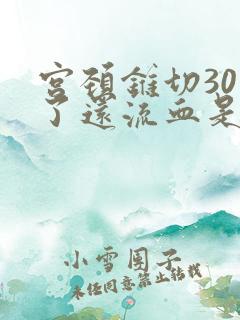 宫颈锥切30
了还流血是
小雪团子
未经同意禁止转载